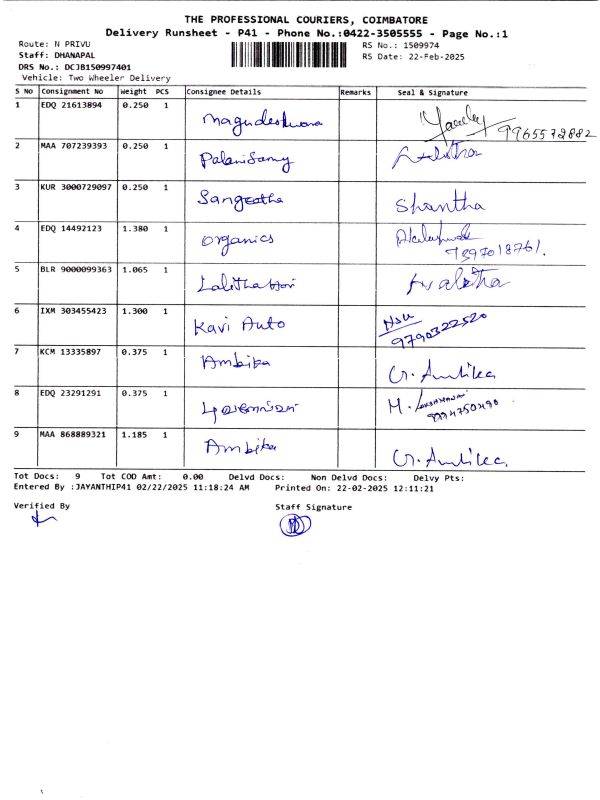 THE PROFESSIONAL COURIERS, COIMBATORE
Delivery Runsheet - P41 - Phone No.:0422-3505555 - Page No.:1
Route: N PRIVU RS No.: 1509974
Staff: DHANAPAL RS Date: 22-Feb-2025
DRS No.: DCJB150997401
Vehicle: Two Wheeler Delivery
S No Consignment No Weight PCS Consignee Details Remarks Seal & Signature
1 EDQ 21613894 0.250 1 Magudeshwara 9965572882
2 MAA 707239393 0.250 1 Palanisamy Lalitha
3 KUR 3000729097 0.250 1 Sangeetha Shantha
4 EDQ 14492123 1.380 1 Organics
5 BLR 9000099363 1.065 1 Lalitha
6 IXM 303455423 1.300 1 Kavi Auto 9790322520
7 KCM 13335897 0.375 1 Ambika G. Ambika
8 EDQ 23291291 0.375 1 M.
9 MAA 868889321 1.185 1 Ambika G. Ambika
Tot Docs: 9 Tot COD Amt: 0.00 Delvd Docs: Non Delvd Docs: Delvy Pts:
Entered By :JAYANTHIP41 02/22/2025 11:18:24 AM Printed On: 22-02-2025 12:11:21
Verified By Staff Signature